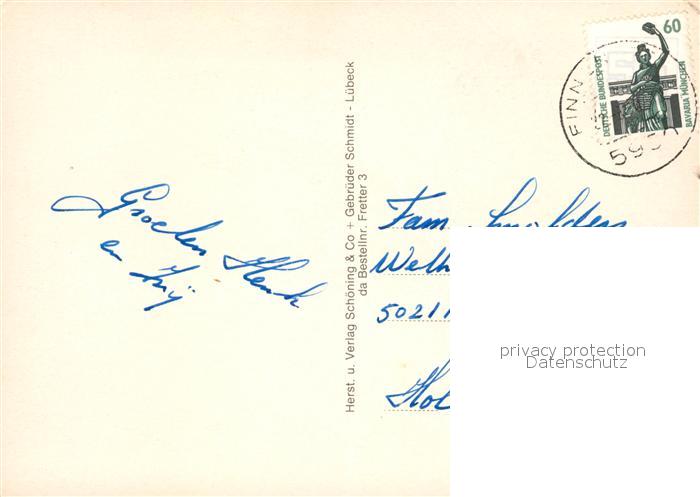 60
DEUTSCHE BUNDESPOST
BAVARIA MÜNCHEN
FINN
Groeten Henk
en
Herst. u. Verlag Schöning & Co + Gebrüder Schmidt - Lübeck
da Bestellnr. Fretter 3
Fam. Smolders
Welh
5021
Hol
privacy protection
Datenschutz